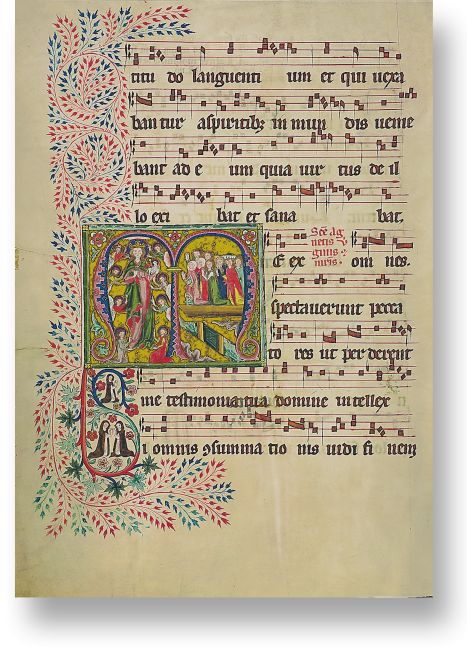 titu do languenti um et qui uexa
ban tur aspiritibꝫ in mun dis uenie
bant ad e um quia uir tus de il
lo exi bat et sana bat.
Sce ag
netis v̇
ginis ⁊
mris.
E ex om nes.
spectauerunt pecca
to res ut per derent
me testimonia tua domine intellex
i omnis ꝯsumma tio nis uidi fi nem